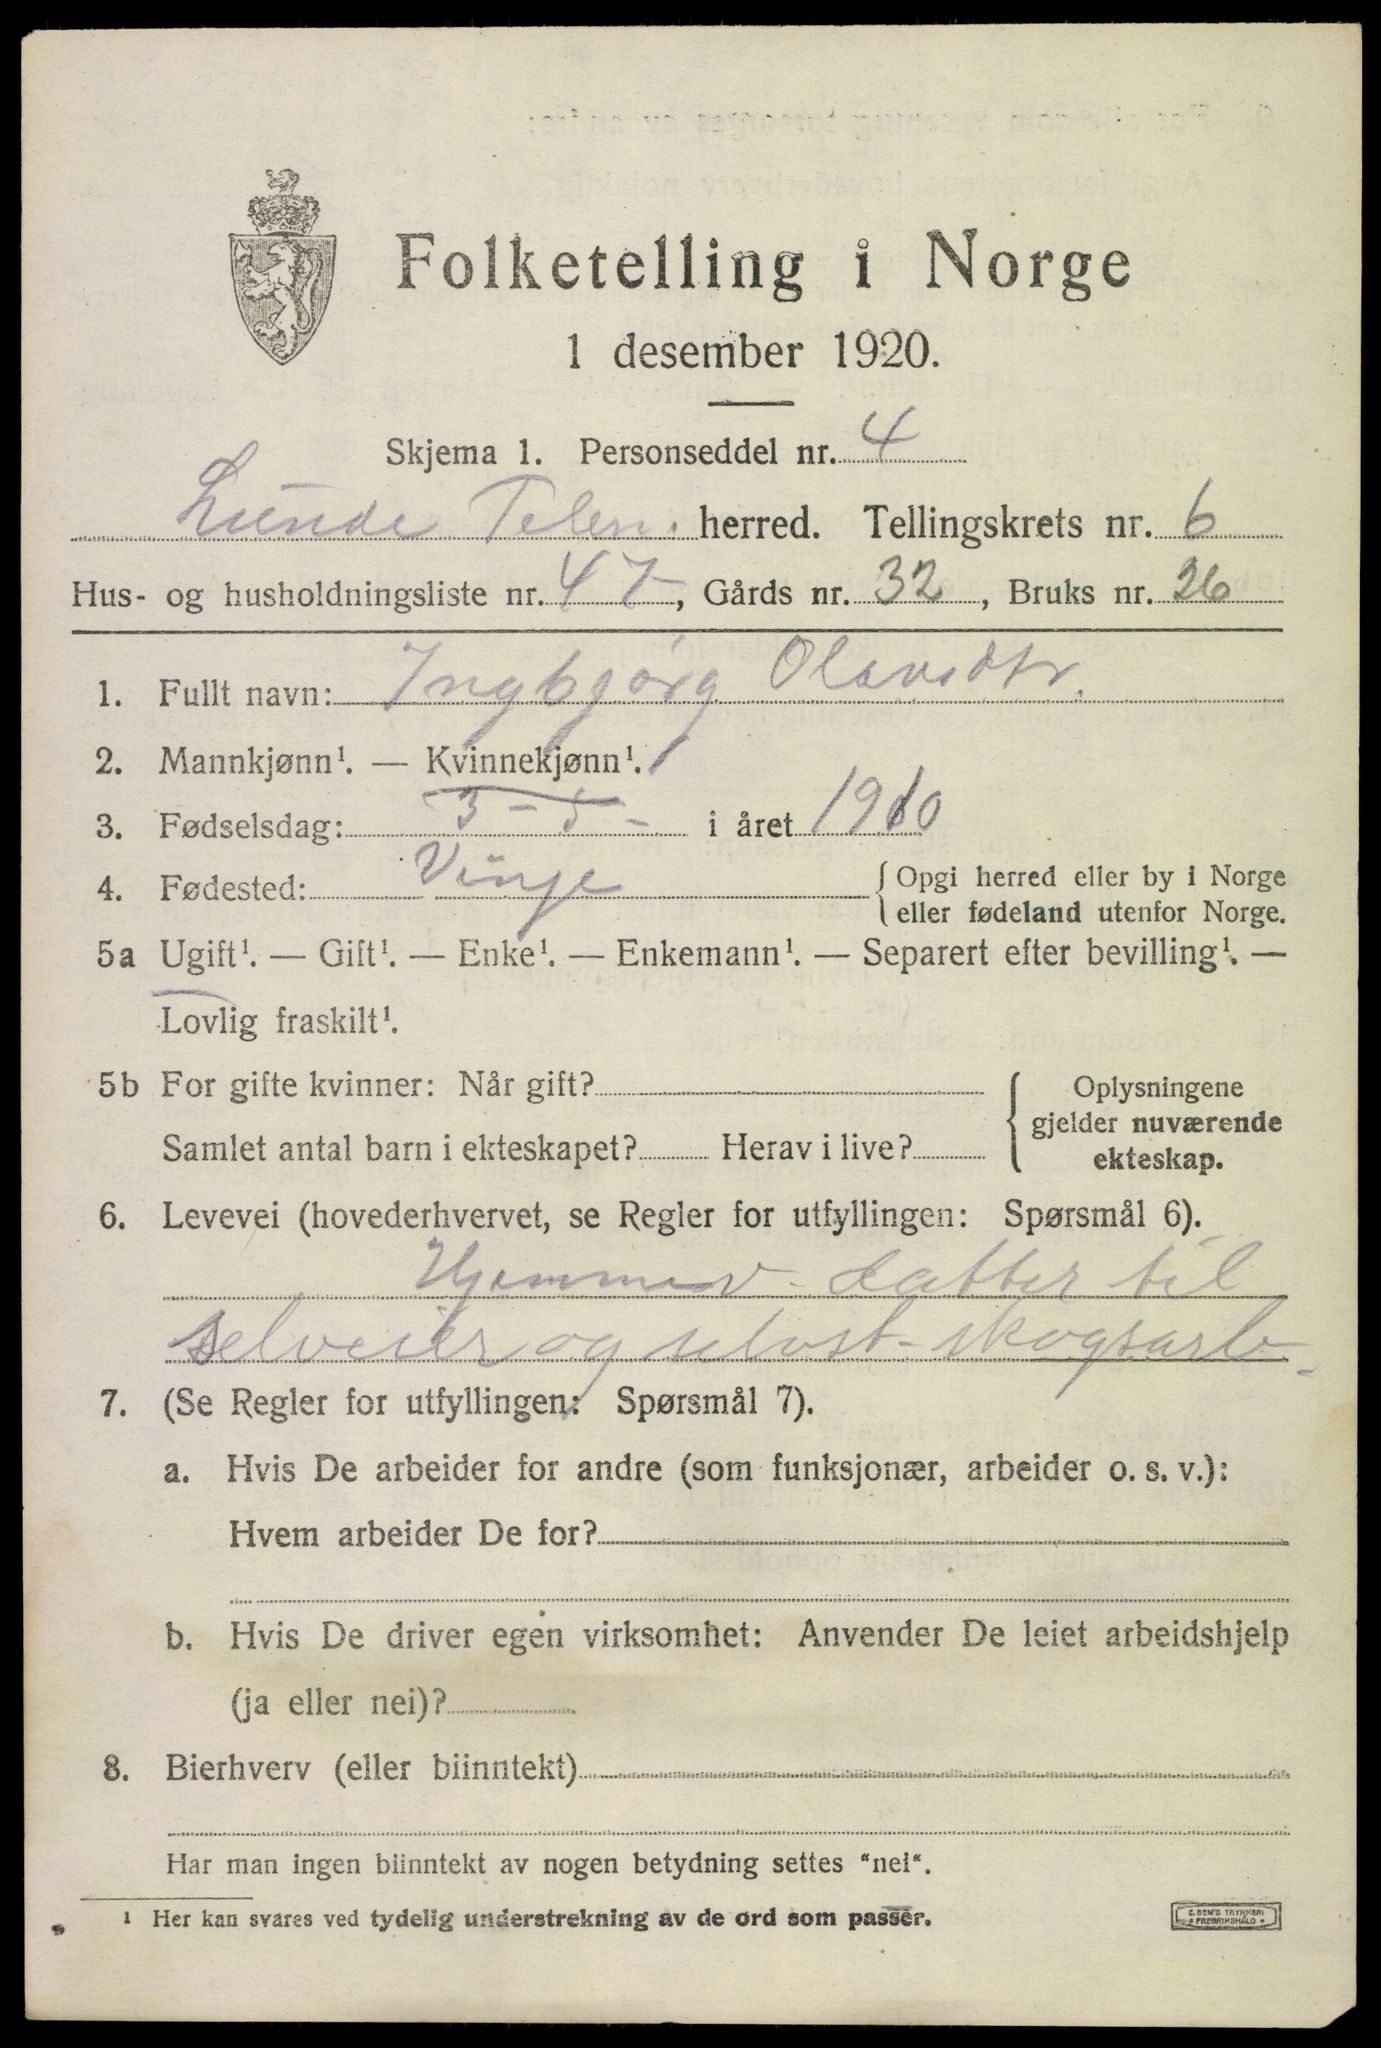 Folketelling i Norge
1 desember 1920.
Skjema 1. Personseddel nr. 4
Lunde Telem. herred. Tellingskrets nr. 6
Hus- og husholdningsliste nr. 47, Gårds nr. 32, Bruks nr. 26
1. Fullt navn: Ingbjørg Olavsdtr.
2. Mannkjønn¹. — Kvinnekjønn¹.
3. Fødselsdag: 3 - 5 - i året 1910
4. Fødested: Vinje { Opgi herred eller by i Norge
eller fødeland utenfor Norge.
5a Ugift¹. — Gift¹. — Enke¹. — Enkemann¹. — Separert efter bevilling¹. —
Lovlig fraskilt¹.
5b For gifte kvinner: Når gift? { Oplysningene
gjelder nuværende
Samlet antal barn i ekteskapet? Herav i live?
ekteskap.
6. Levevei (hovederhvervet, se Regler for utfyllingen: Spørsmål 6).
Hjemmev. datter til
selveier og selvst. skogsarb.
7. (Se Regler for utfyllingen: Spørsmål 7).
a. Hvis De arbeider for andre (som funksjonær, arbeider o. s. v.):
Hvem arbeider De for?
b. Hvis De driver egen virksomhet: Anvender De leiet arbeidshjelp
(ja eller nei)?
8. Bierhverv (eller biinntekt)
Har man ingen biinntekt av nogen betydning settes "nei".
¹ Her kan svares ved tydelig understrekning av de ord som passer.
E. SEM'S TRYKKERI
FREDRIKSHALD